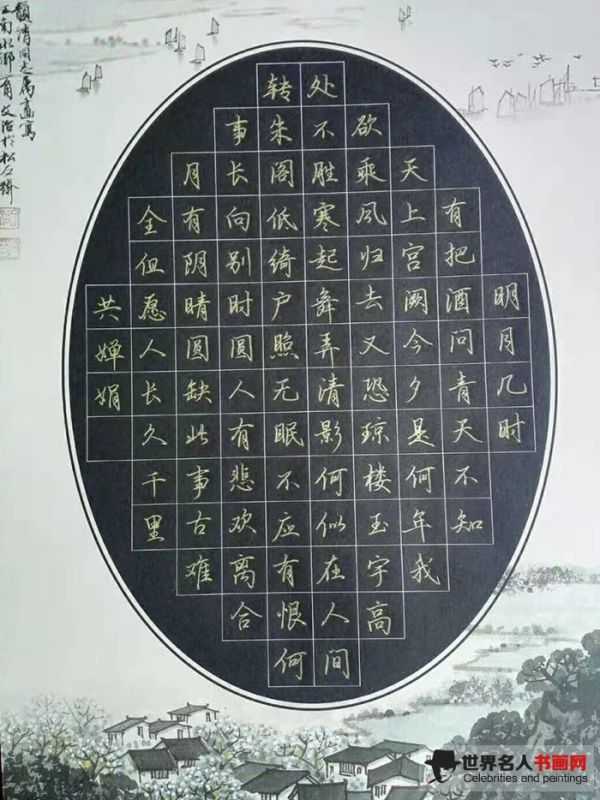 明月几时
有把酒问青天不知
天上宫阙今夕是何年我
欲乘风归去又恐琼楼玉宇高
处不胜寒起舞弄清影何似在人间
转朱阁低绮户照无眠不应有恨何
事长向别时圆人有悲欢离合
月有阴晴圆缺此事古难
全但愿人长久千里
共婵娟
世界名人书画网
Celebrities and paintings